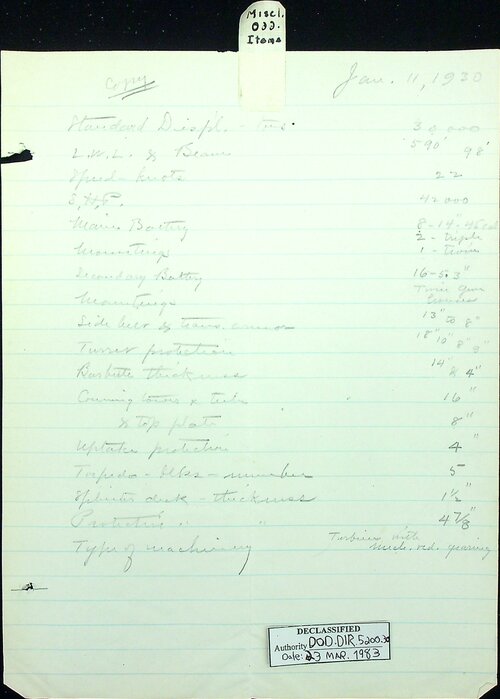 Miscl.
033.
Items
Copy
Jan. 11, 1930
Standard Displ. - tns. 30 000
L.W.L. & Beam 590' 98'
Speed - knots 22
S.H.P. 42 000
Main Battery 8-14"-45 cal
2 - triple
Mounting 1 - twin
Secondary Battery 16-5.3"
Mountings Twin Gun
Side belt & trans. armor 13" to 8"
Turret protection 18" 10" 8" 3"
Barbette thickness 14" & 4"
Conning tower & tube " 16"
& top plate 8"
Uptake protection 4"
Torpedo - blks - number 5
Splinter deck - thickness 1½"
Protective " " 4⅞"
Type of machinery Turbines with
Mech. red. gearing
DECLASSIFIED
Authority DOD.DIR.5200.30
Date: 23 MAR. 1983